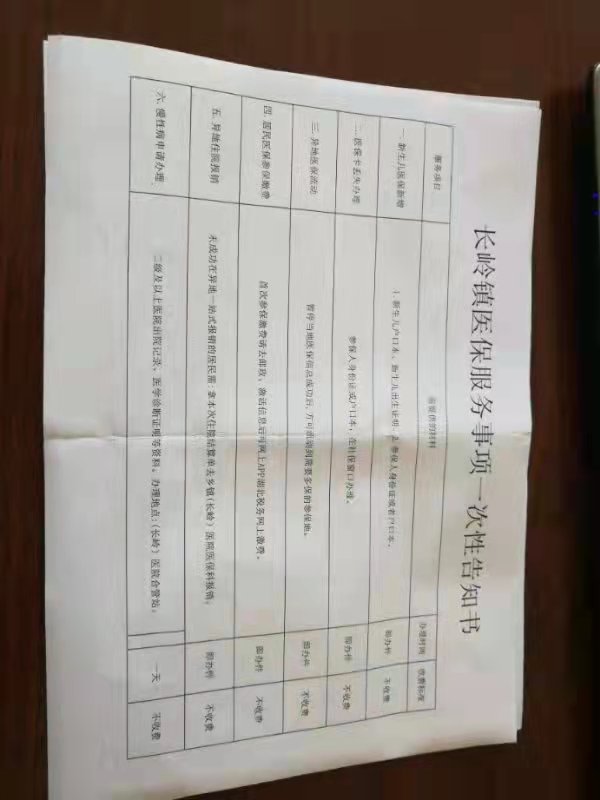 长岭镇医保服务事项一次性告知书
服务项目 需提供的材料 办理时间 收费标准
一. 新生儿医保新增 1. 新生儿户口本、新生儿出生证明。2. 参保人身份证或者户口本。 即办件 不收费
二. 医保卡丢失办理 参保人身份证或户口本，在社保窗口办理。 即办件 不收费
三. 异地医保流动 暂停当地医保信息成功后，方可流动到需要参保的参保地。 即办件 不收费
四. 居民医保参保缴费 首次参保缴费请去邮政，激活信息后可网上APP湖北税务网上缴费。 即办件 不收费
五. 异地住院报销 未成功在异地一站式报销的居民需：拿本次住院结算单去乡镇(长岭)医院医保科报销。 即办件 不收费
六. 慢性病申请办理 二级及以上医院出院记录、医学诊断证明等资料。办理地点：(长岭)医院合管站。 一天 不收费